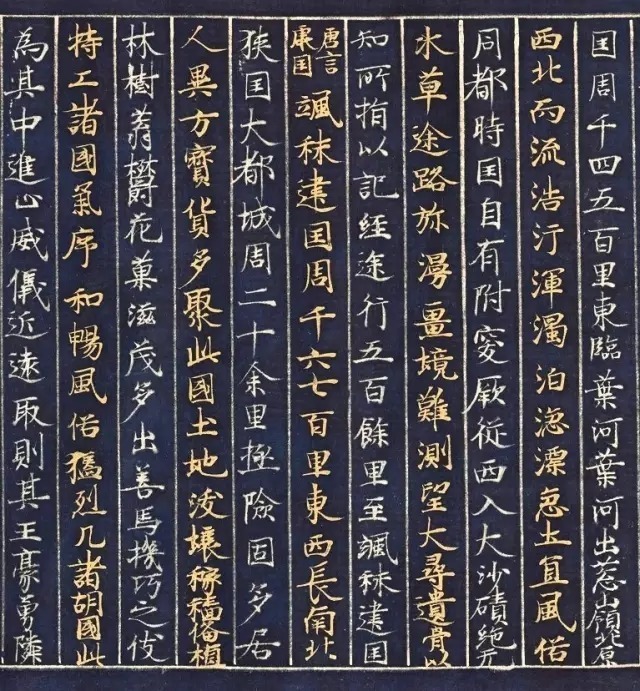 囯周千四五百里東臨葉河葉河出葱山嶺北原
西北而流浩汗渾濁泊淴漂急土宜風俗
同都時囯自有附突厥從西入大沙磧絶无
水草途路弥漫畺境難測望大尋遺骨以
知所指以記經途行五百餘里至颯秣建囯
唐言康囯颯秣建囯周千六七百里東西長南北
狹囯大都城周二十余里極險固多居
人異方寶貨多聚此國土地沃壤稼穡俻植
林樹蓊欝花菓滋茂多出善馬機巧之伎
特工諸國氣序和暢風俗猛烈凡諸胡國此
為其中進止威儀近遠取則其王豪勇隣